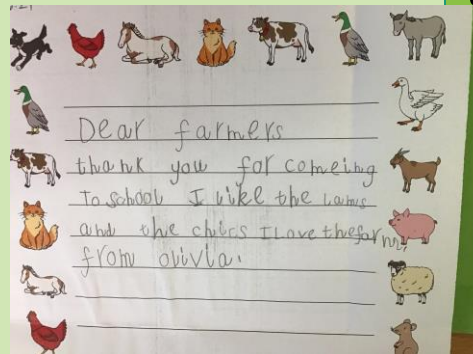 Dear farmers
thank you for comeing
To school I like the lams
and the chics I Love the farm,
from olivia.